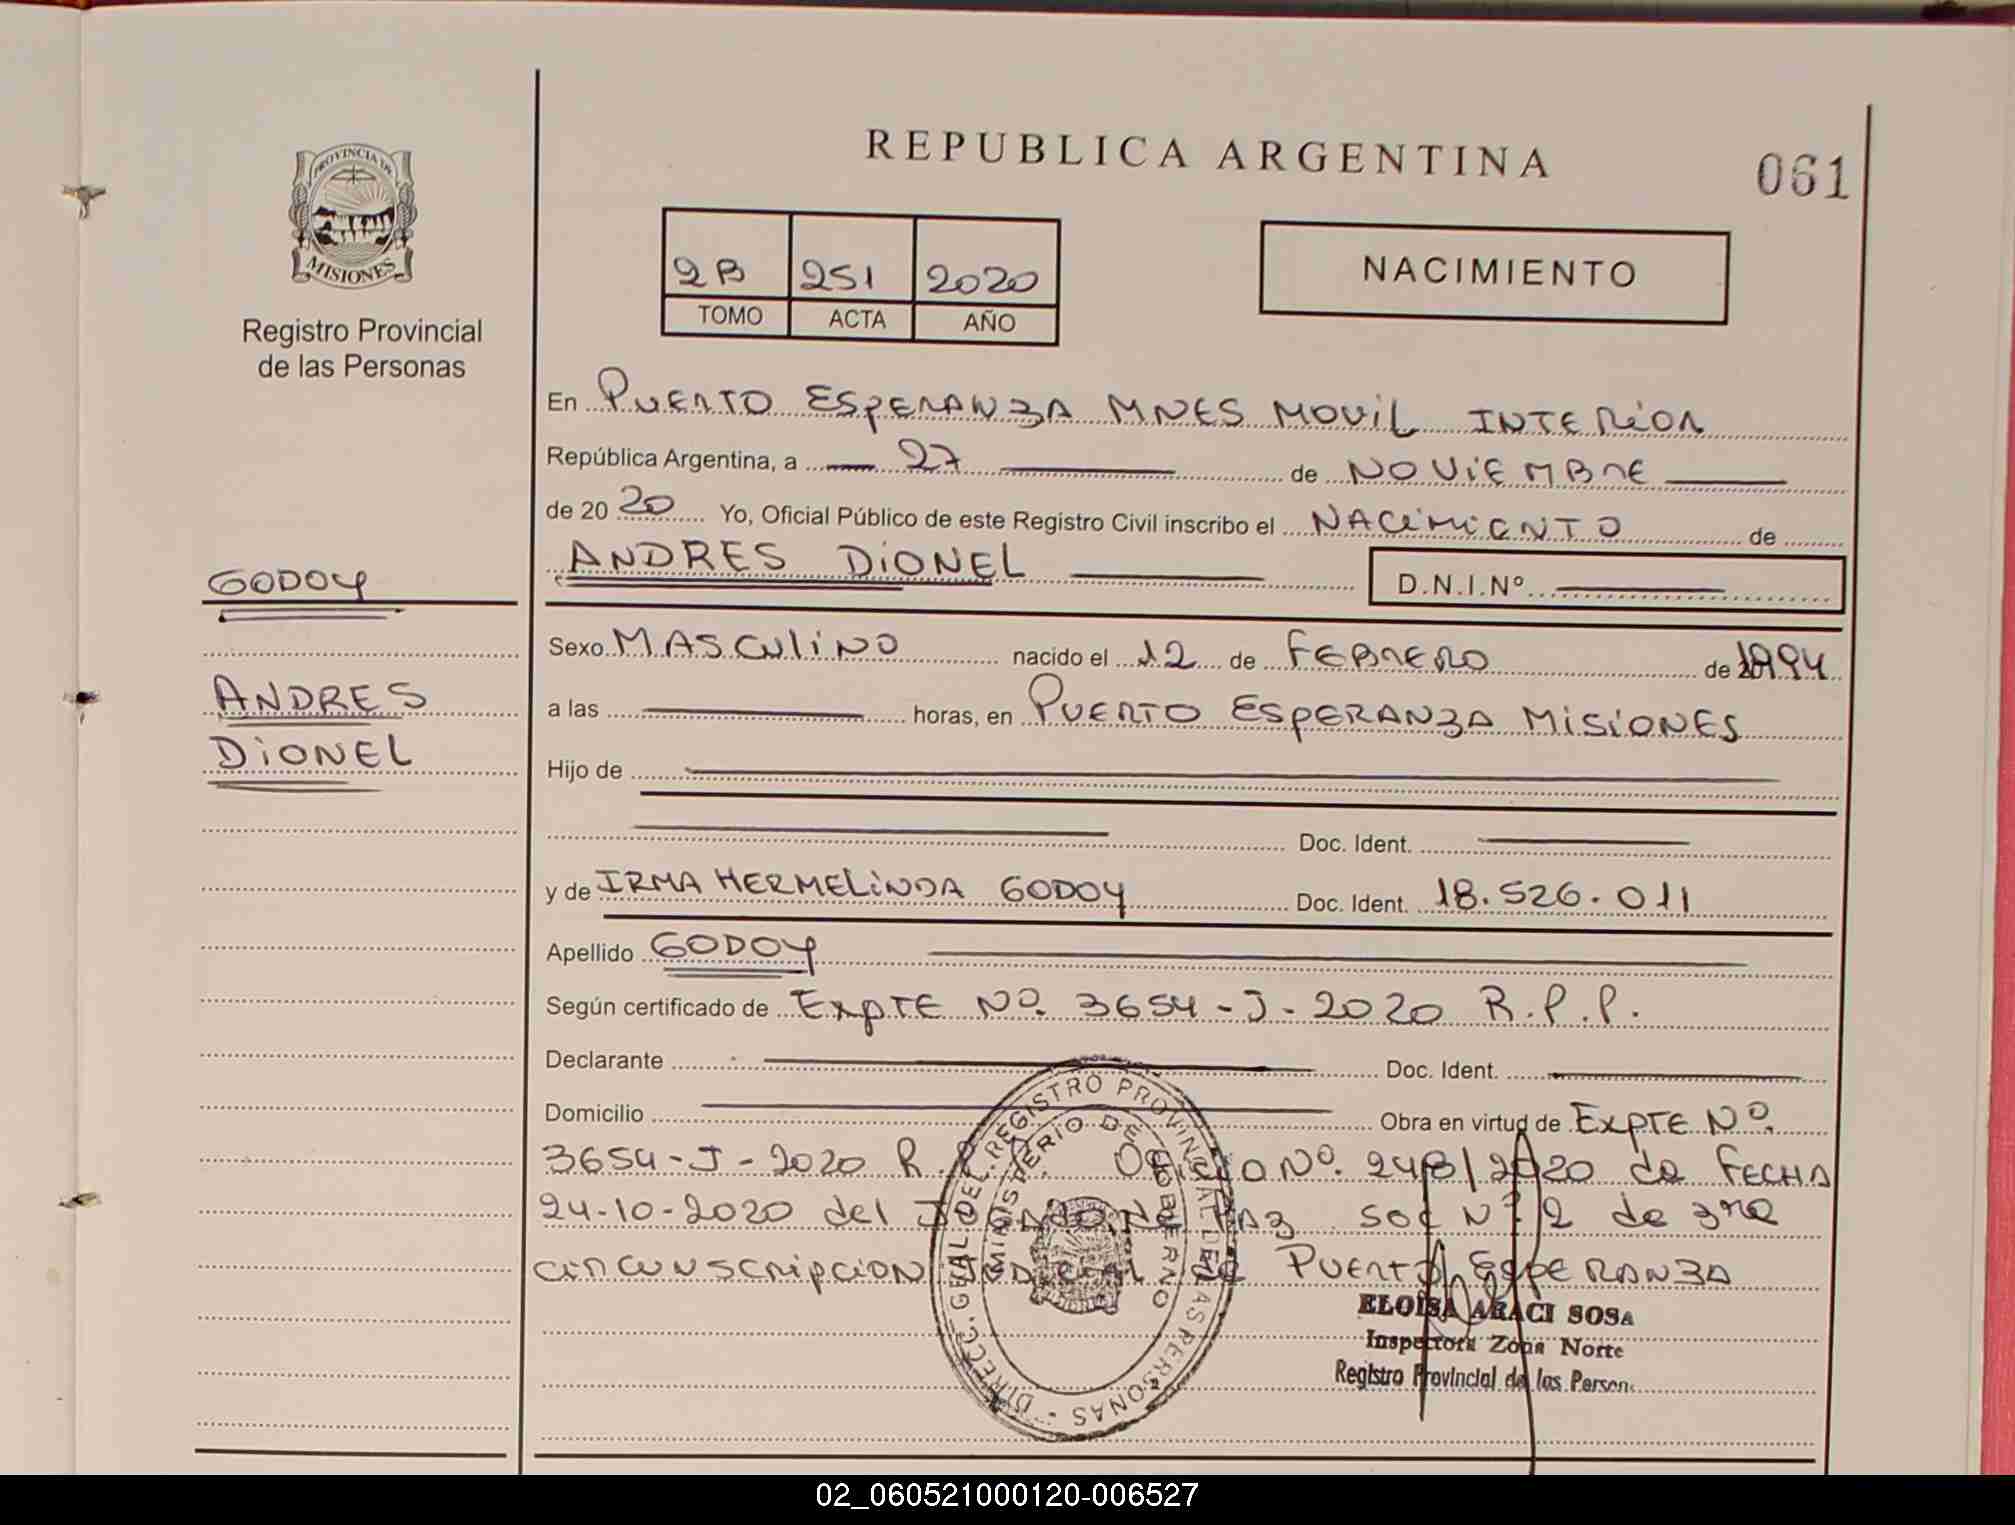 REPUBLICA ARGENTINA
061
PROVINCIA DE
MISIONES
Registro Provincial
de las Personas
2B 251 2020
TOMO ACTA AÑO
NACIMIENTO
En PUERTO ESPERANZA MNES MOVIL INTERIOR
República Argentina, a 27 de NOVIEMBRE
de 20 20 Yo, Oficial Público de este Registro Civil inscribo el NACIMIENTO de
ANDRES DIONEL D.N.I.Nº
GODOY
ANDRES
DIONEL
Sexo MASCULINO nacido el 12 de FEBRERO de 1994
a las horas, en PUERTO ESPERANZA MISIONES
Hijo de
Doc. Ident.
y de IRMA HERMELINDA GODOY Doc. Ident. 18.526.011
Apellido GODOY
Según certificado de EXPTE Nº. 3654-J-2020 R.P.P.
Declarante Doc. Ident.
Domicilio Obra en virtud de EXPTE Nº.
3654-J-2020 R.P.P. OFICIO Nº. 248/2020 de FECHA
24-10-2020 del JUZGADO DE PAZ Nº. 2 de 3ra
CIRCUNSCRIPCION JUDICIAL de PUERTO ESPERANZA
DIREC. GRAL. DEL REGISTRO PROVINCIAL DE LAS PERSONAS -
MINISTERIO DE GOBIERNO
ELOISA ARACI SOSA
Inspectora Zona Norte
Registro Provincial de las Person
02_060521000120-006527